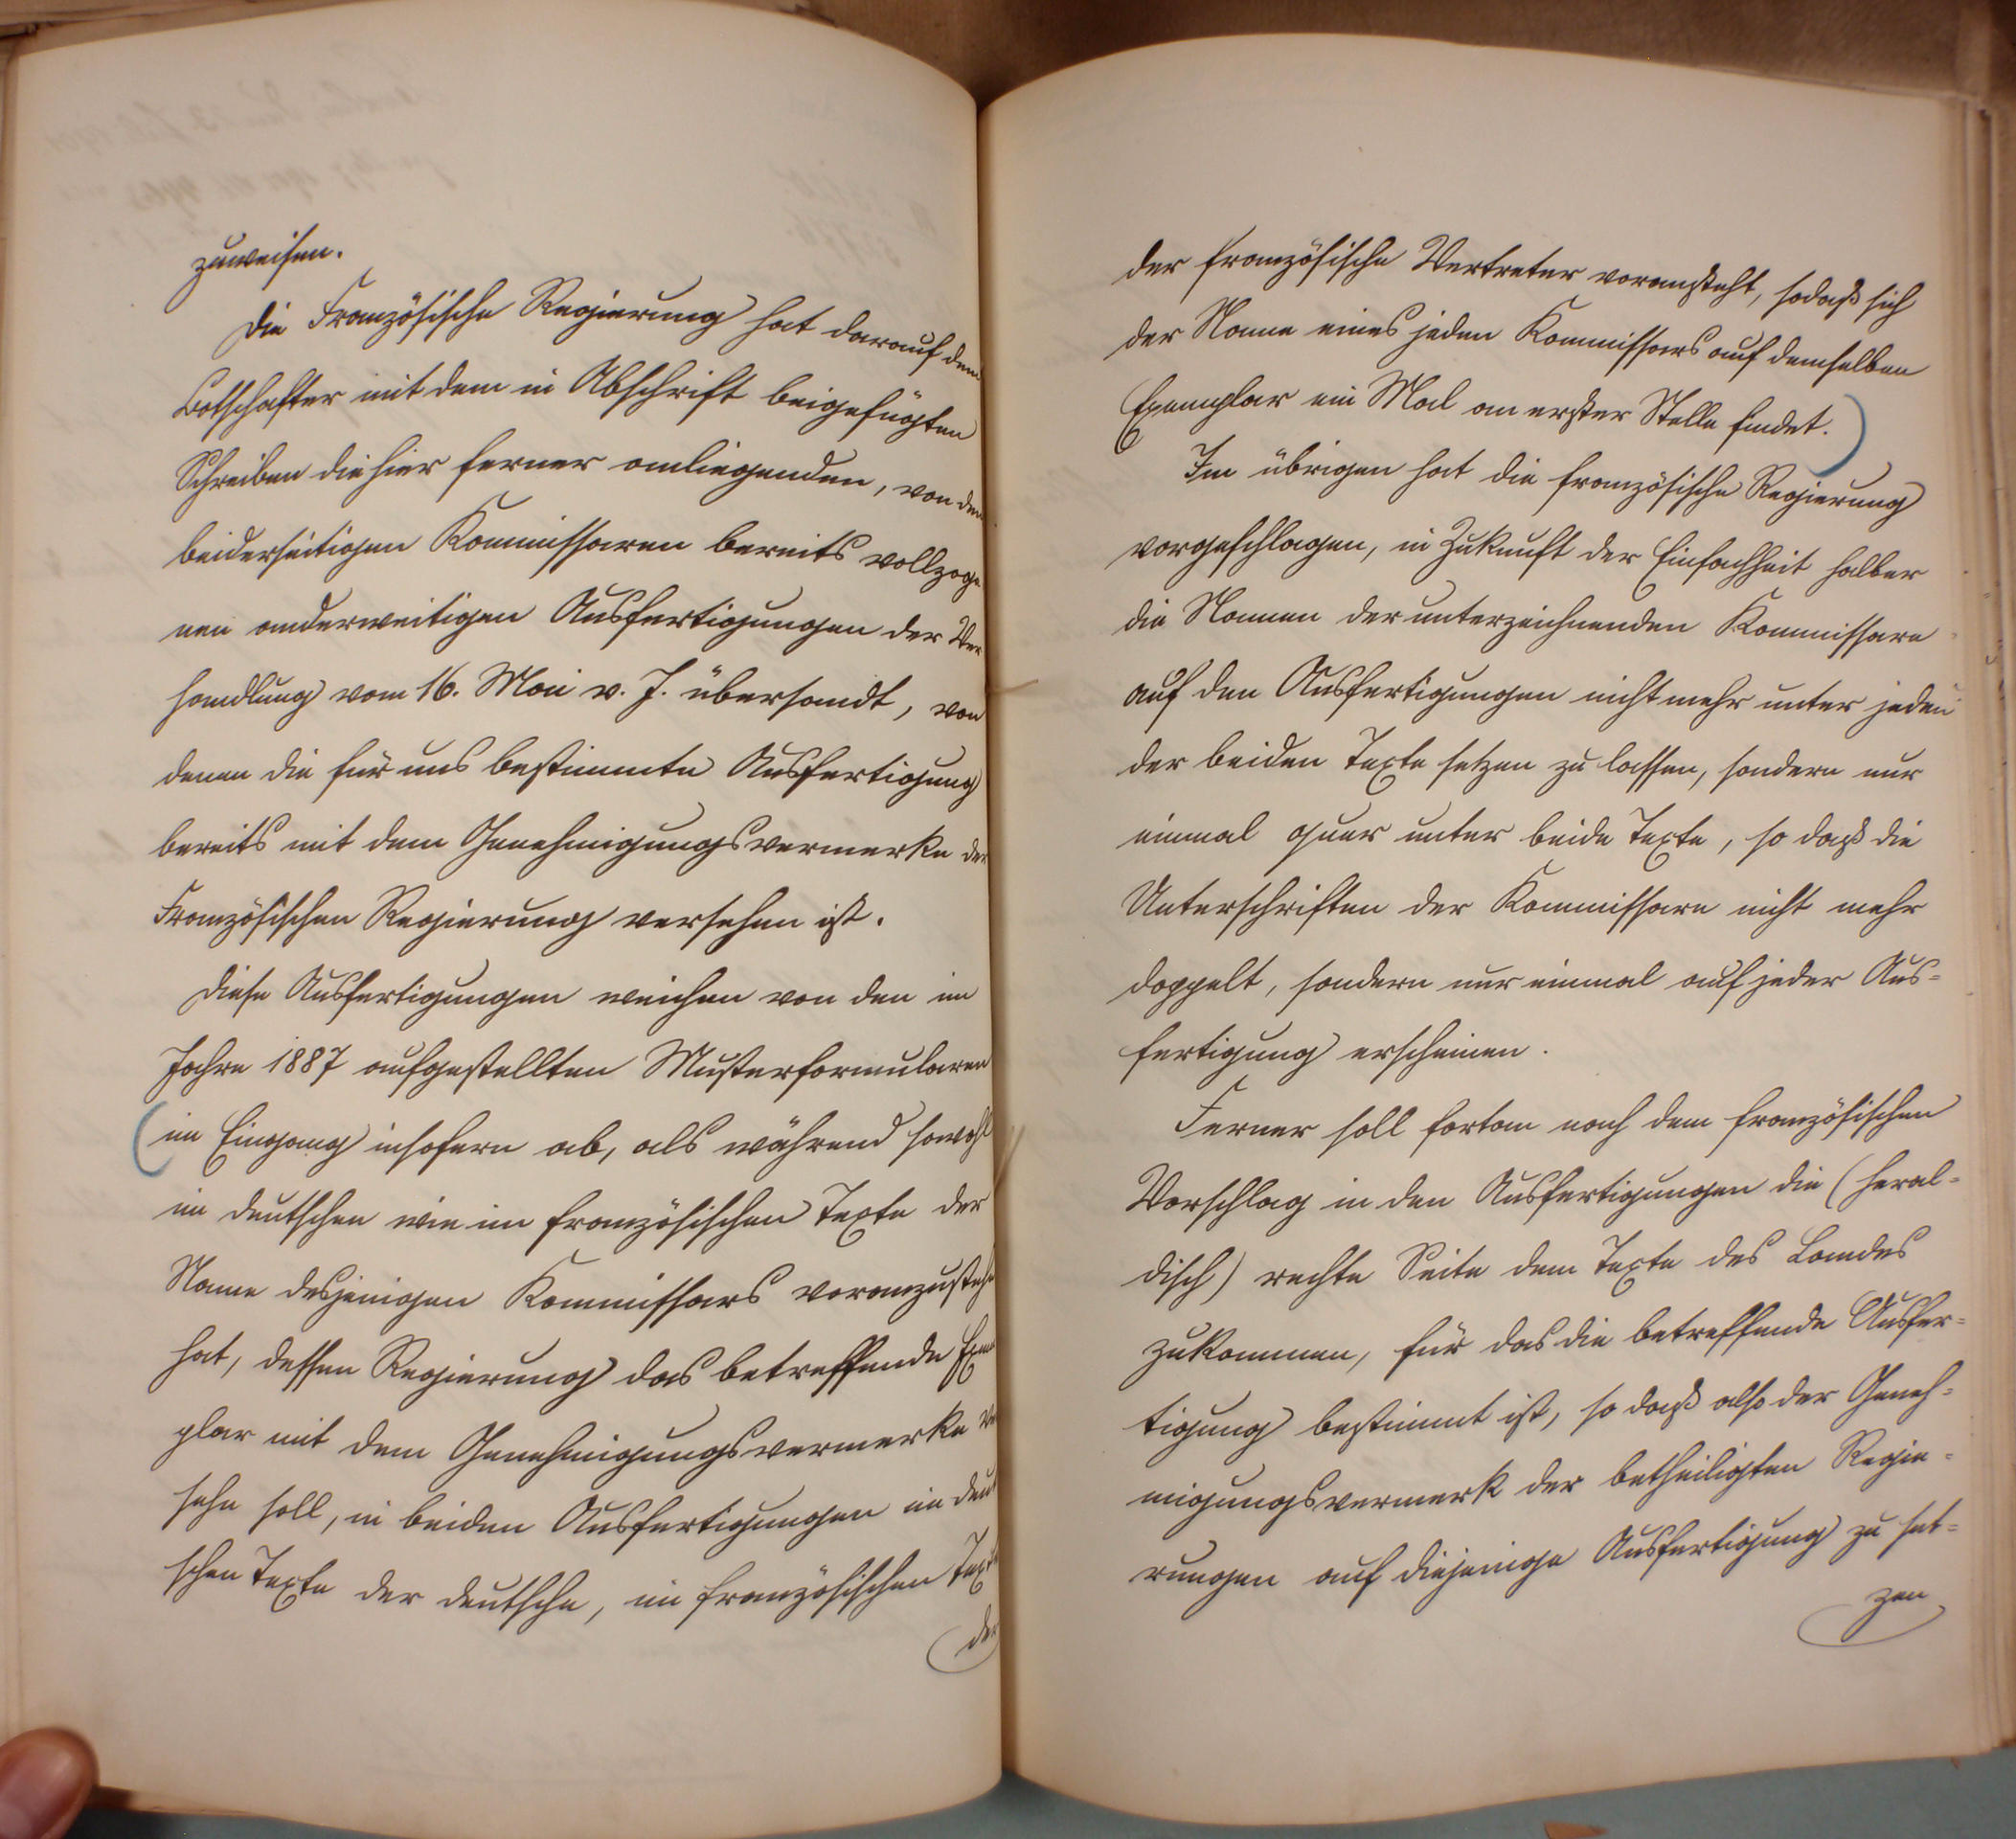 zuweisen.
Die Französische Regierung hat darauf dem
Botschafter mit dem in Abschrift beigefügten
Schreiben die hier ferner anliegenden, von den
beiderseitigen Kommissaren bereits vollzoge
nen anderweitigen Ausfertigungen der Ver
handlung vom 16. Mai v. J. übersandt, von
denen die für uns bestimmte Ausfertigung
bereits mit dem Genehmigungsvermerke der
Französischen Regierung versehen ist.
Diese Ausfertigungen weichen von den im
Jahre 1887 aufgestellten Musterformularen
(im Eingang insofern ab, als während sowohl
im deutschen wie im französischen Texte der
Name desjenigen Kommissars voranzustehn
hat, dessen Regierung das betreffende Exem
plar mit dem Genehmigungsvermerke ver
sehn soll, in beiden Ausfertigungen im deut
schen Texte der deutsche, im französischen Texte
der
der französische Vertreter voransteht, sodaß sich
der Name eines jeden Kommissars auf demselben
Exemplar ein Mal an erster Stelle findet.)
Im übrigen hat die französische Regierung
vorgeschlagen, in Zukunft der Einfachheit halber
die Namen der unterzeichnenden Kommissare
auf den Ausfertigungen nicht mehr unter jeden
der beiden Texte setzen zu lassen, sondern nur
einmal quer unter beide Texte, so daß die
Unterschriften der Kommissare nicht mehr
doppelt, sondern nur einmal auf jeder Aus=
fertigung erscheinen.
Ferner soll fortan nach dem französischen
Vorschlag in den Ausfertigungen die (heral=
disch) rechte Seite dem Texte des Landes
zukommen, für das die betreffende Ausfer=
tigung bestimmt ist, so daß also der Geneh=
migungsvermerk der betheiligten Regie=
rungen auf diejenige Ausfertigung zu set=
zen